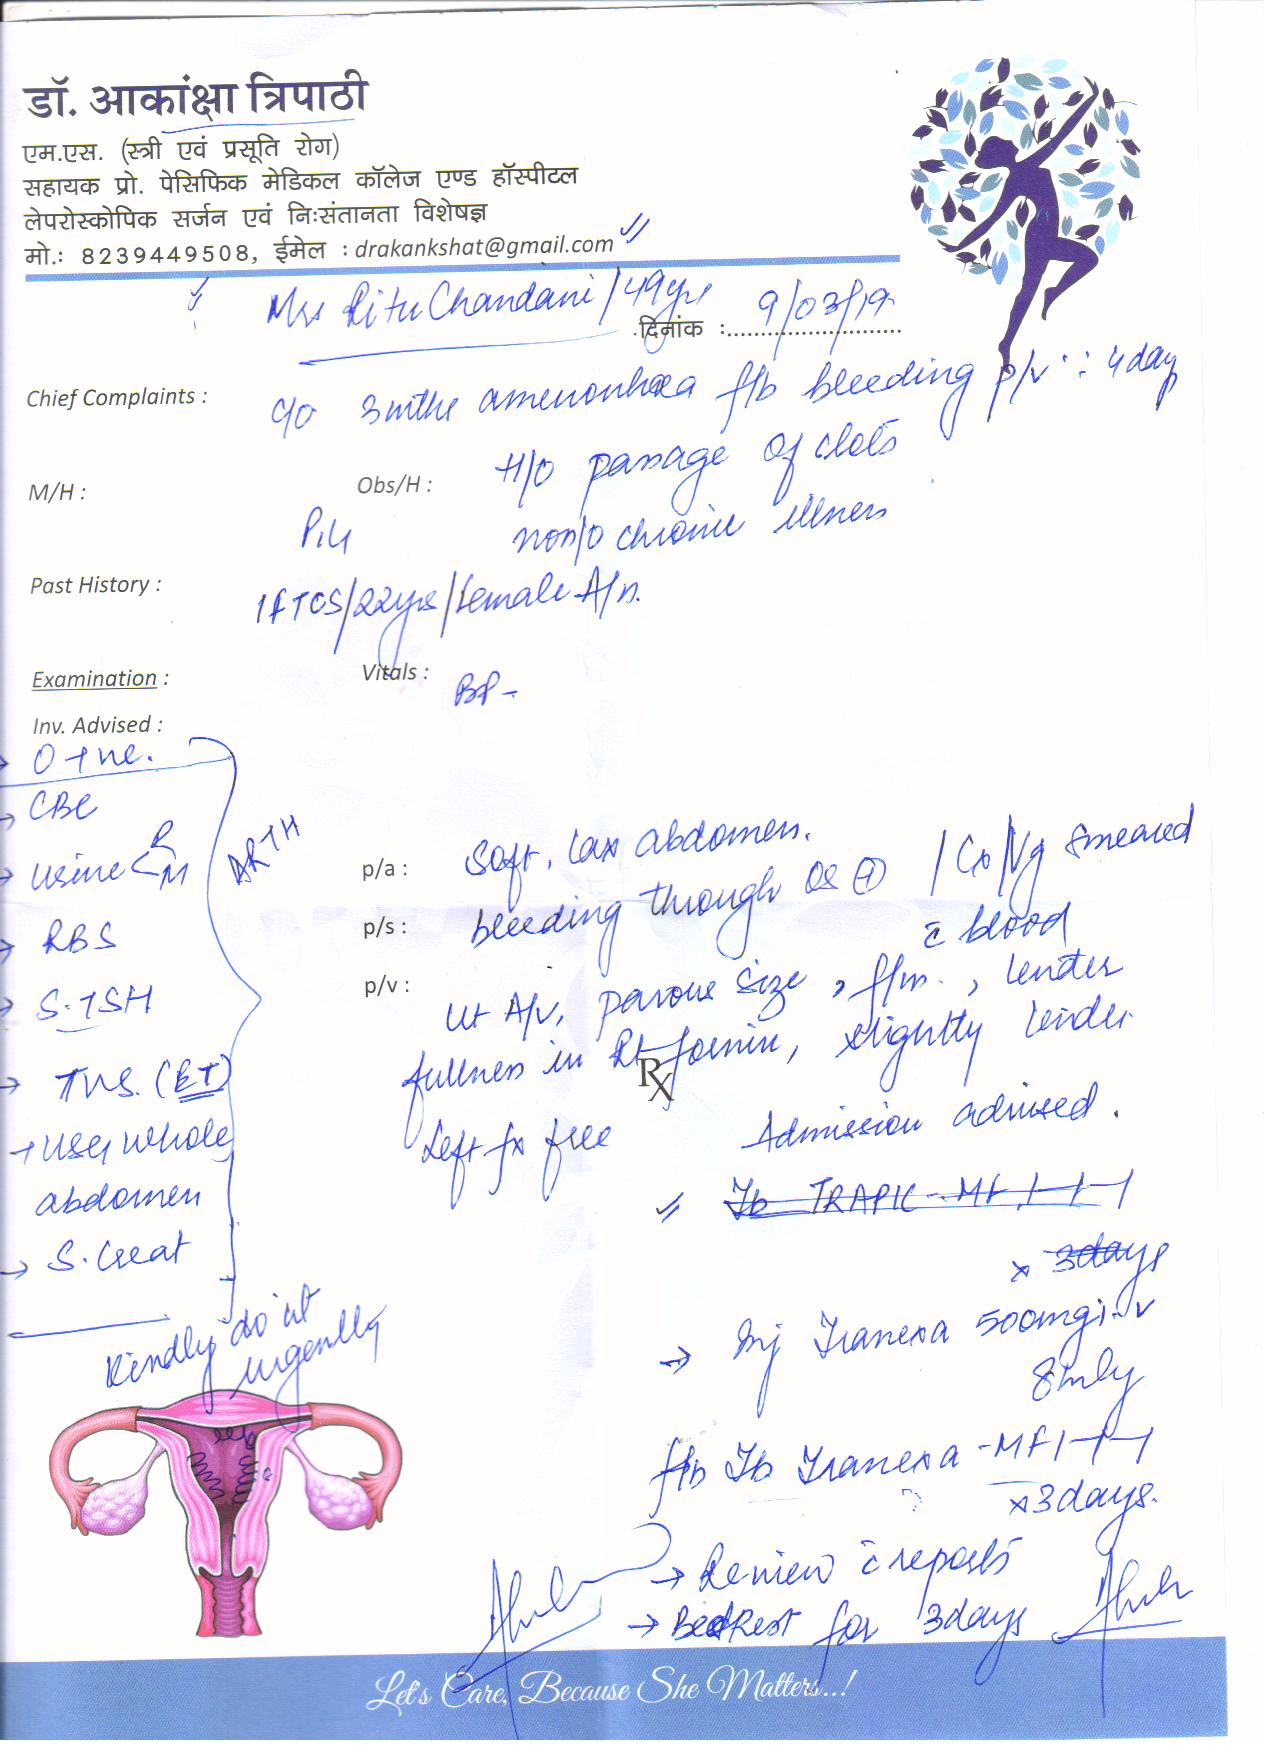 डॉ. आकांक्षा त्रिपाठी
एम.एस. (स्त्री एवं प्रसूति रोग)
सहायक प्रो. पेसिफिक मेडिकल कॉलेज एण्ड हॉस्पीटल
लेपरोस्कोपिक सर्जन एवं निःसंतानता विशेषज्ञ
मो.: 8239449508, ईमेल : drakankshat@gmail.com
Mrs Ritu Chandani / 49yrs
दिनांक : 9/03/19
Chief Complaints : c/o 3mths amenorrhoea f/b bleeding p/v ∵ 4day
H/O passage of clots
M/H : Obs/H :
P1L1 no h/o chronic illness
Past History :
1 FTCS/22yrs/female A/n.
Examination : Vitals : BP -
Inv. Advised :
→ O +ve.
→ CBC
→ Urine R M
→ RBS
→ S.TSH
→ TVS. (ET)
→ USG whole
abdomen
→ S.Creat
ARTH
Kindly do it
urgently
p/a : Soft, lax abdomen.
p/s : bleeding through os + / Cx/Vg smeared
c̄ blood
p/v : Ut A/V, parous size, f/m., tender
fullness in Rt fornix, slightly tender
Left fx free
Rx
Admission advised.
Tb TRAPIC-MF 1-1-1
x 3days
→ Inj Tranexa 500mg i.v
8hrly
f/b Tb Tranexa-MF 1-1-1
x 3days.
→ Review c̄ reports
→ Bed Rest for 3days
Let's Care, Because She Matters...!